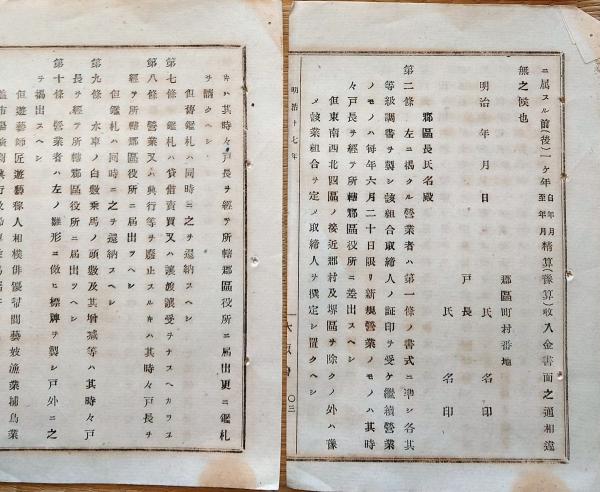 ニ属スル前(後)一ケ年自年月至年月精算(豫算)收入金書面之通相違
無之候也
郡區町村番地
明治 年 月 日 氏 名 印
戸長 氏 名 印
郡區長氏名殿
第二條 左ニ掲クル營業者ハ第一條ノ書式ニ準シ各其
等級調書ヲ製シ該組合取締人ノ証印ヲ受ケ繼續營業
ノモノハ毎年六月二十日限リ新規營業ノモノハ其時
々戸長ヲ經テ所轄郡區役所ニ差出スヘシ
但東南西北四區ノ接近郡村及堺區ヲ除クノ外ハ豫
メ該業組合ヲ定メ取締人ヲ撰定シ置クヘシ
明治十七年
大阪
〇三
キハ其時々戸長ヲ經テ所轄郡區役所ニ届出更ニ鑑札
ヲ請クヘシ
但舊鑑札ハ同時ニ之ヲ還納スヘシ
第七條 鑑札ハ貸借賣買又ハ讓渡讓受ヲナスヘカラス
第八條 營業又ハ興行等ヲ廢止スルキハ其時々戸長ヲ
經テ所轄郡區役所ニ届出ヘシ
但鑑札ハ同時ニ之ヲ還納スヘシ
第九條 水車ノ臼數乘馬ノ頭數及其增减等ハ其時々戸
長ヲ經テ所轄郡區役所ニ届出ヘシ
第十條 營業者ハ左ノ雛形ニ倣ヒ標牌ヲ製シ戸外ニ之
ヲ掲出スヘシ
但遊藝師匠遊藝稼人相撲俳優幇間藝妓漁業捕鳥業